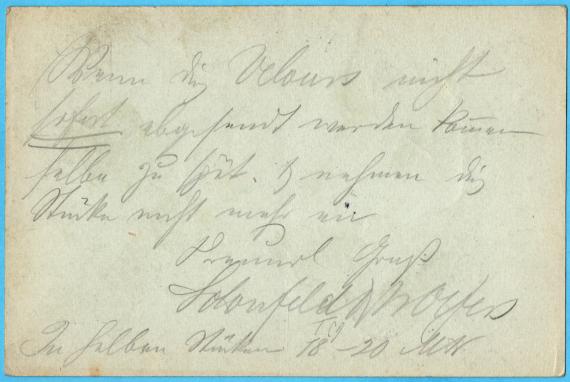 Wenn die Velours nicht
sofort abgesandt werden kommen
selbe zu spät. & nehmen die
Stücke nicht mehr an
Freundl Gruß
Schönfeld & Wolfers
In halben Stücken 18-20 Mtr